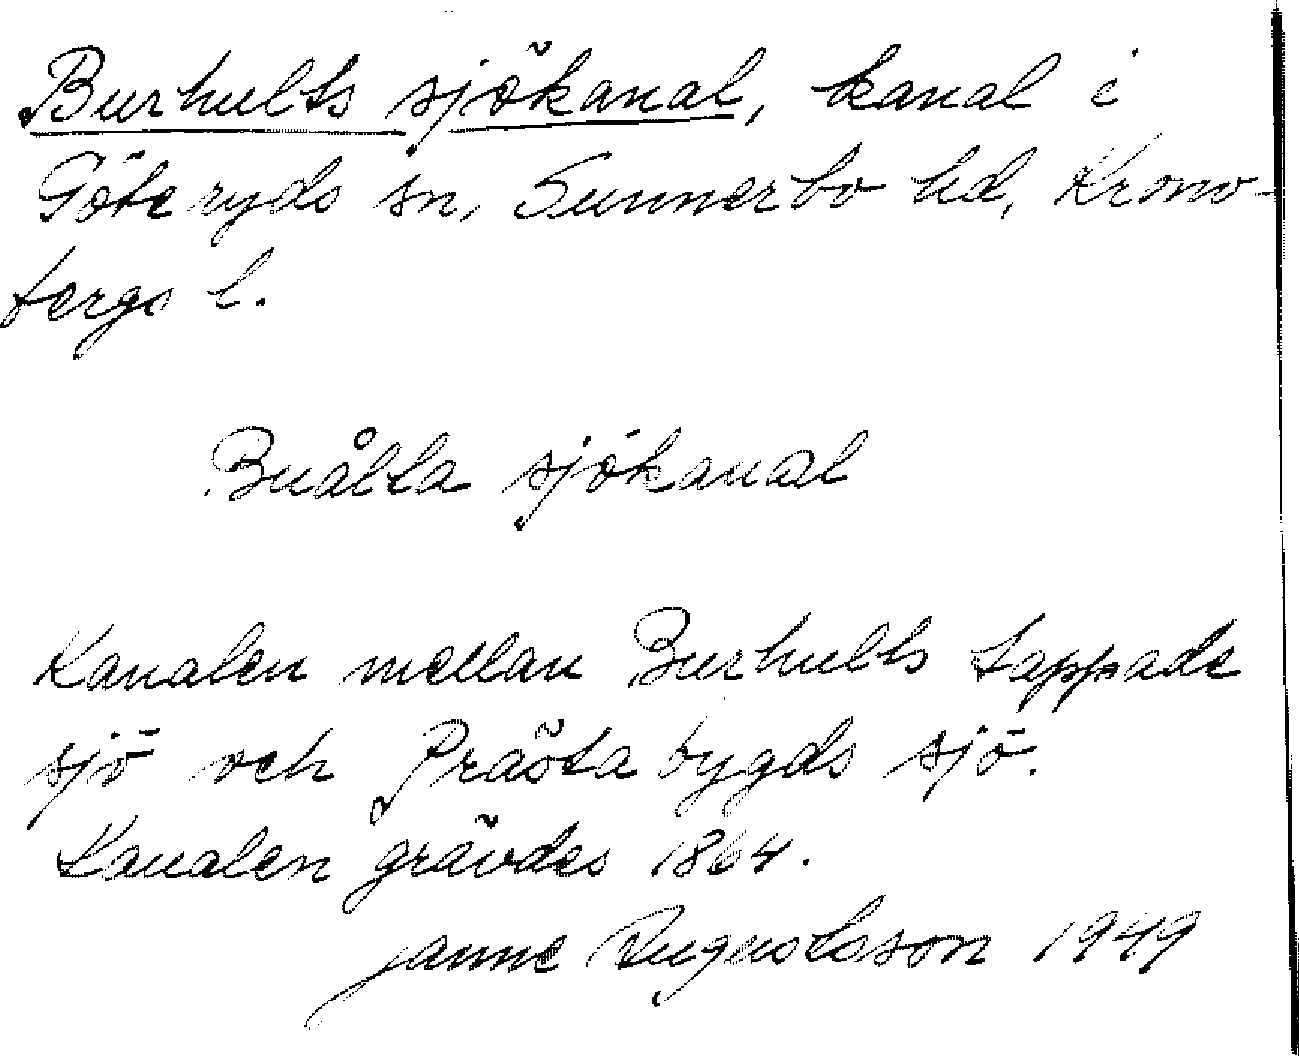 Burhults sjökanal, kanal i
Göteryds sn, Sunnerbo hd, Krono-
bergs l.
Buålta sjökanal
Kanalen mellan Burhults tappade
sjö och Prästabygds sjö.
Kanalen grävdes 1864.
Janne Augustsson 1949